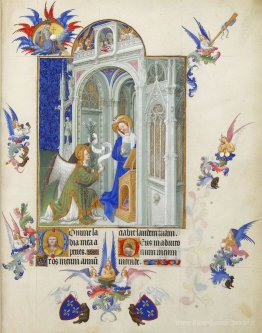 Domine la
bia mea a
peries.
Et os meum annun
ciabit laudem tuam.
Deus in adiuto
rium meum
intende.